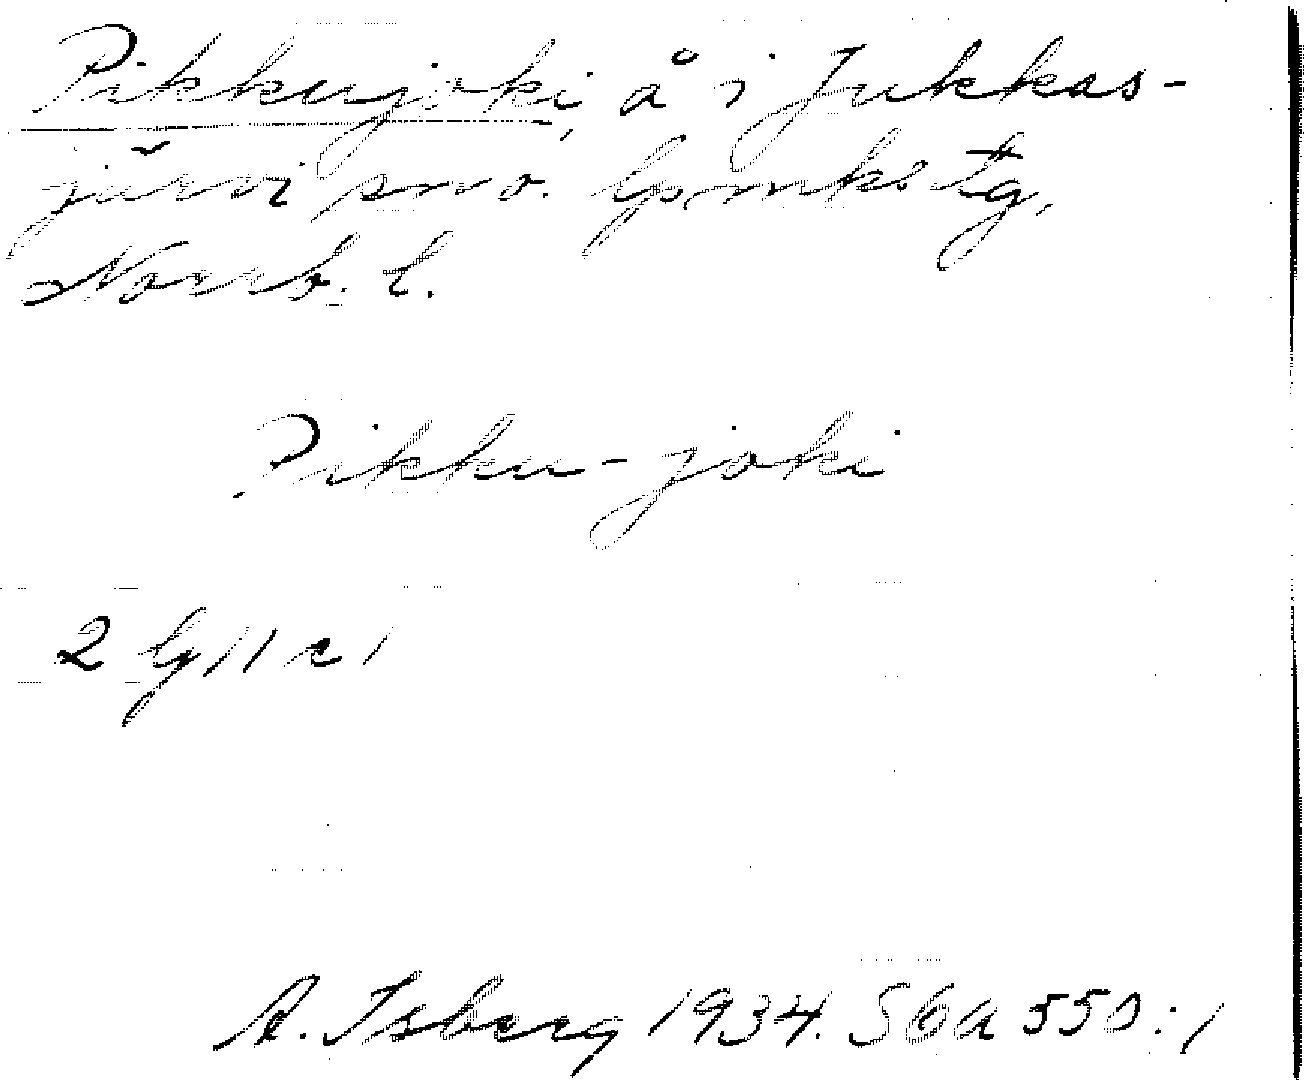 Pikkujoki, å i Jukkas-
järvi sn o. lpmks tg,
Norrb. l.
Pikku-joki
2 lg 11 c 1
A. Isberg 1934. S6a 550:1